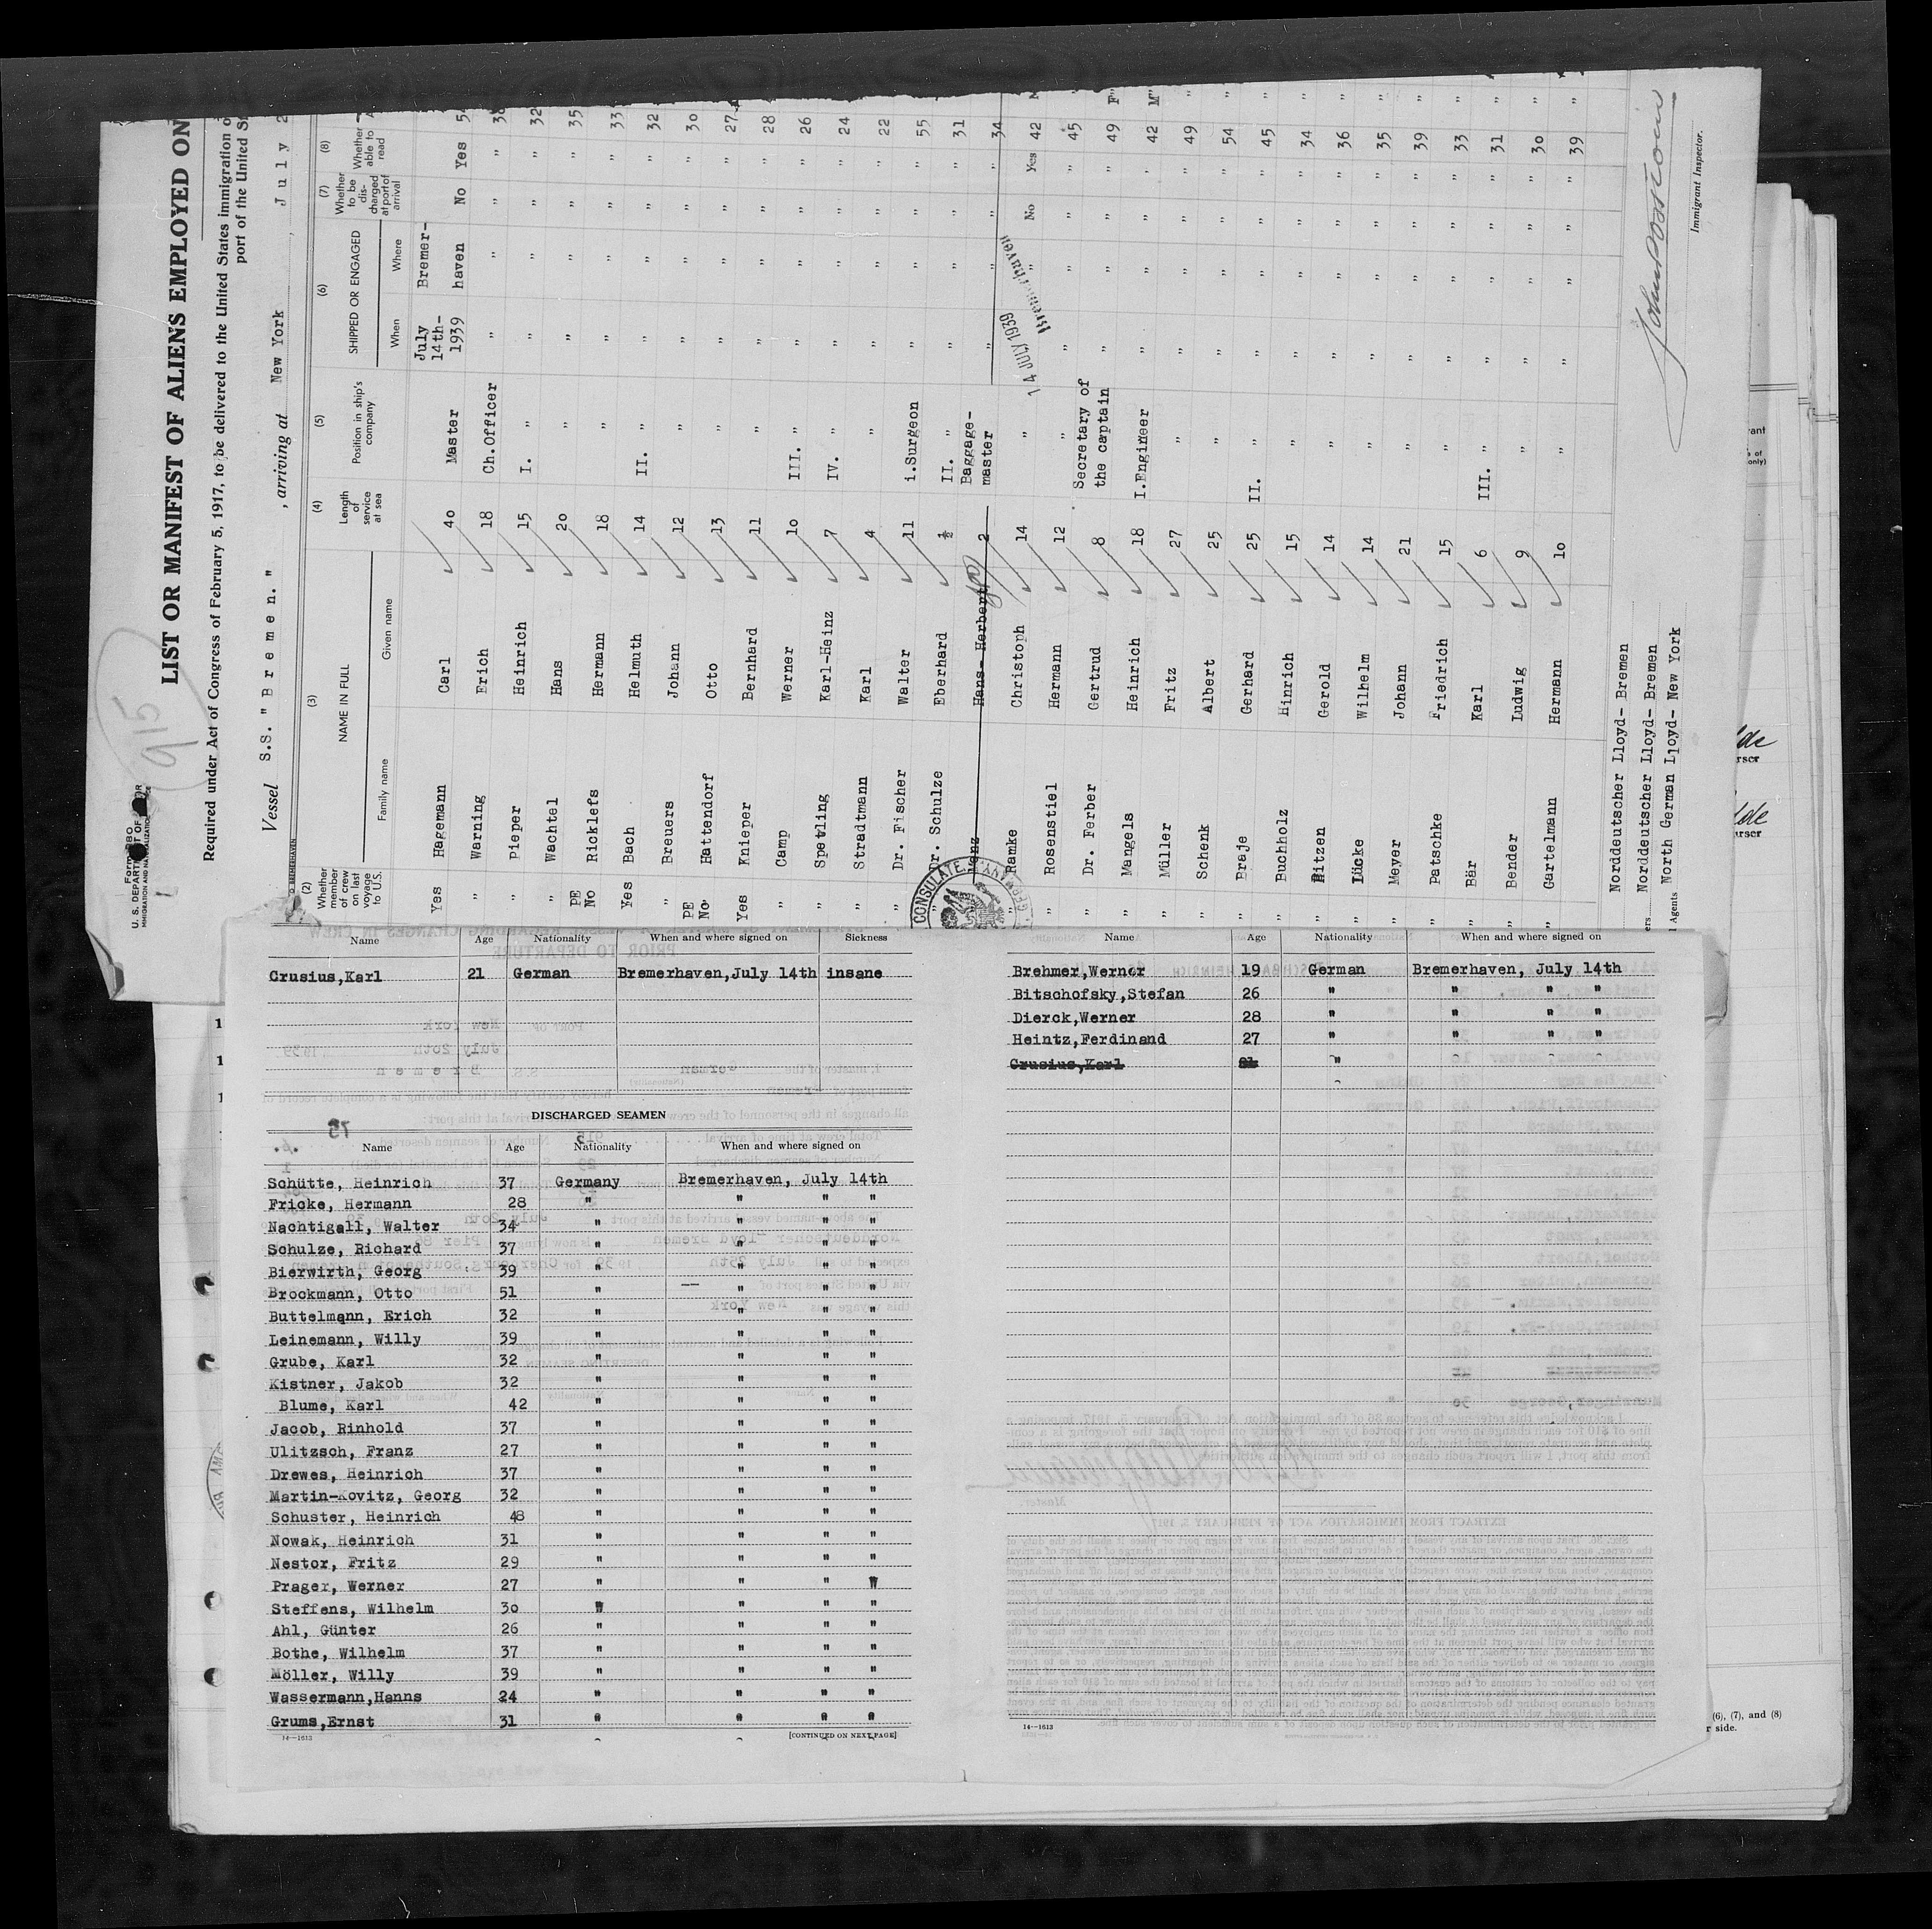 Form 680
U. S. DEPARTMENT OF
IMMIGRATION AND NATURALIZATION
915
LIST OR MANIFEST OF ALIENS EMPLOYED ON
Required under Act of Congress of February 5, 1917, to be delivered to the United States immigration
port of the United
Vessel S.S. "Bremen." , arriving at New York , July 2
(2) (3) (4) (5) (6) (7) (8)
Whether member of crew on last voyage to U.S. NAME IN FULL Length of service at sea Position in ship's company SHIPPED OR ENGAGED Whether to be discharged at port of arrival Whether able to read
Family name Given name When Where
Yes Hagemann Carl 40 Master July 14th- 1939 Bremerhaven No Yes
" Warning Erich 18 Ch.Officer " " " "
" Pieper Heinrich 15 I. " " " " " 32
" Wachtel Hans 20 " " " " " 35
PE No Ricklefs Hermann 18 " " " " " 33
Yes Bach Helmuth 14 II. " " " " " 32
" Breuers Johann 12 " " " " " 30
PE No. Hattendorf Otto 13 " " " " " 27
Yes Knieper Bernhard 11 " " " " " 28
" Camp Werner 10 III. " " " " " 26
" Spetling Karl-Heinz 7 IV. " " " " " 24
" Stradtmann Karl 4 " " " " " 22
" Dr. Fischer Walter 11 i.Surgeon " " " " 55
" Dr. Schulze Eberhard ½ II. " " " " " 31
Hans- Herbert 2 Baggage-master " " " " 34
" Ramke Christoph 14 " 14 JULY 1939 Bremerhaven No Yes 42
" Rosenstiel Hermann 12 " " " " " 45
" Dr. Ferber Gertrud 8 Secretary of the captain " " " " 49 F"
" Mangels Heinrich 18 I.Engineer " " " " 42 M"
" Müller Fritz 27 " " " " " 49 "
" Schenk Albert 25 " " " " " 54 "
" Braje Gerhard 25 II. " " " " " 45 "
" Buchholz Hinrich 15 " " " " " 34 "
" Bitzen Gerold 14 " " " " " 36 "
" Lücke Wilhelm 14 " " " " " 35 "
" Meyer Johann 21 " " " " " 39 "
" Patschke Friedrich 15 " " " " " 33 "
" Bär Karl 6 III. " " " " " 31 "
" Bender Ludwig 9 " " " " " 30 "
" Gartelmann Hermann 10 " " " " " 39 "
CONSULATE
Norddeutscher Lloyd- Bremen
Norddeutscher Lloyd- Bremen
Agents North German Lloyd- New York
Immigrant Inspector.
Name Age Nationality When and where signed on Sickness
Crusius,Karl 21 German Bremerhaven,July 14th insane
DISCHARGED SEAMEN
Name Age Nationality When and where signed on
Schütte, Heinrich 37 Germany Bremerhaven, July 14th
Fricke, Hermann 28 " " " "
Nachtigall, Walter 34 " " " "
Schulze, Richard 37 " " " "
Bierwirth, Georg 39 " " " "
Brockmann, Otto 51 " " " "
Buttelmann, Erich 32 " " " "
Leinemann, Willy 39 " " " "
Grube, Karl 32 " " " "
Kistner, Jakob 32 " " " "
Blume, Karl 42 " " " "
Jacob, Rinhold 37 " " " "
Ulitzsch, Franz 27 " " " "
Drewes, Heinrich 37 " " " "
Martin-Kovitz, Georg 32 " " " "
Schuster, Heinrich 48 " " " "
Nowak, Heinrich 31 " " " "
Nestor, Fritz 29 " " " "
Prager, Werner 27 " " " "
Steffens, Wilhelm 30 " " " "
Ahl, Günter 26 " " " "
Bothe, Wilhelm 37 " " " "
Möller, Willy 39 " " " "
Wassermann,Hanns 24 " " " "
Grums,Ernst 31 " " " "
14—1613 [CONTINUED ON NEXT PAGE]
Name Age Nationality When and where signed on
Brehmer,Werner 19 German Bremerhaven, July 14th
Bitschofsky,Stefan 26 " " " "
Dierck,Werner 28 " " " "
Heintz,Ferdinand 27 " " " "
Crusius,Karl 21 " " " "
14—1613
(6), (7), and (8)
side.